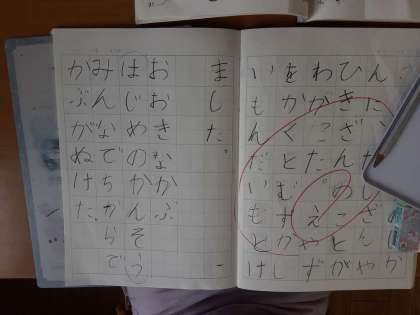 んに、たしざんや
ひきざんのことが
わかった。えやず
をかくとむずかし
いもんだいもとけ
ました。
おおきなかぶ
はじめのかんそう
みんなでちからで
かぶがぬけた。